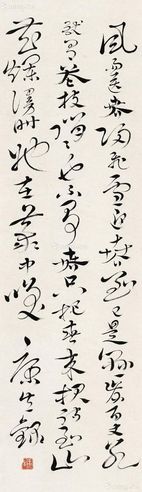 風雨送春歸飛雪迎春到已是懸崖百丈冰
猶有花枝俏俏也不爭春只把春來報待到山
花爛漫時她在叢中笑 康生錄